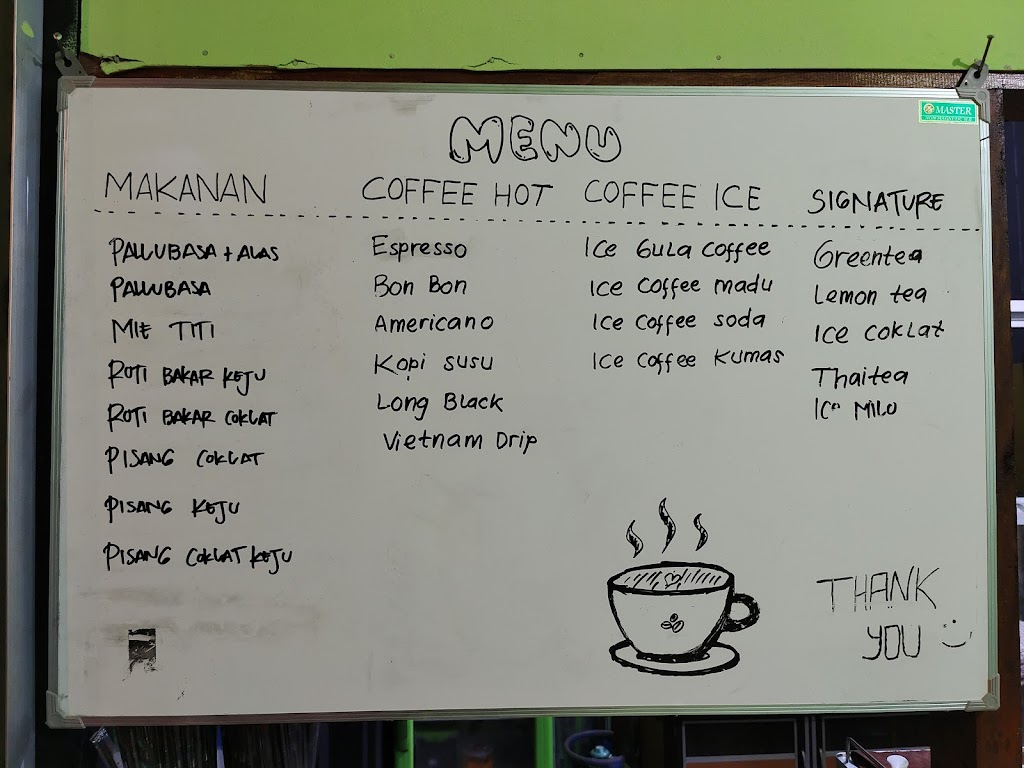 MENU
MAKANAN
PALLUBASA + ALAS
PALLUBASA
MIE TITI
ROTI BAKAR KEJU
ROTI BAKAR COKLAT
PISANG COKLAT
PISANG KEJU
PISANG COKLAT KEJU
COFFEE HOT
Espresso
Bon Bon
Americano
Kopi susu
Long Black
Vietnam Drip
COFFEE ICE
Ice Gula Coffee
Ice Coffee madu
Ice Coffee soda
Ice Coffee Kumas
SIGNATURE
Greentea
Lemon tea
Ice Coklat
Thaitea
Ice MILO
THANK
YOU
MASTER